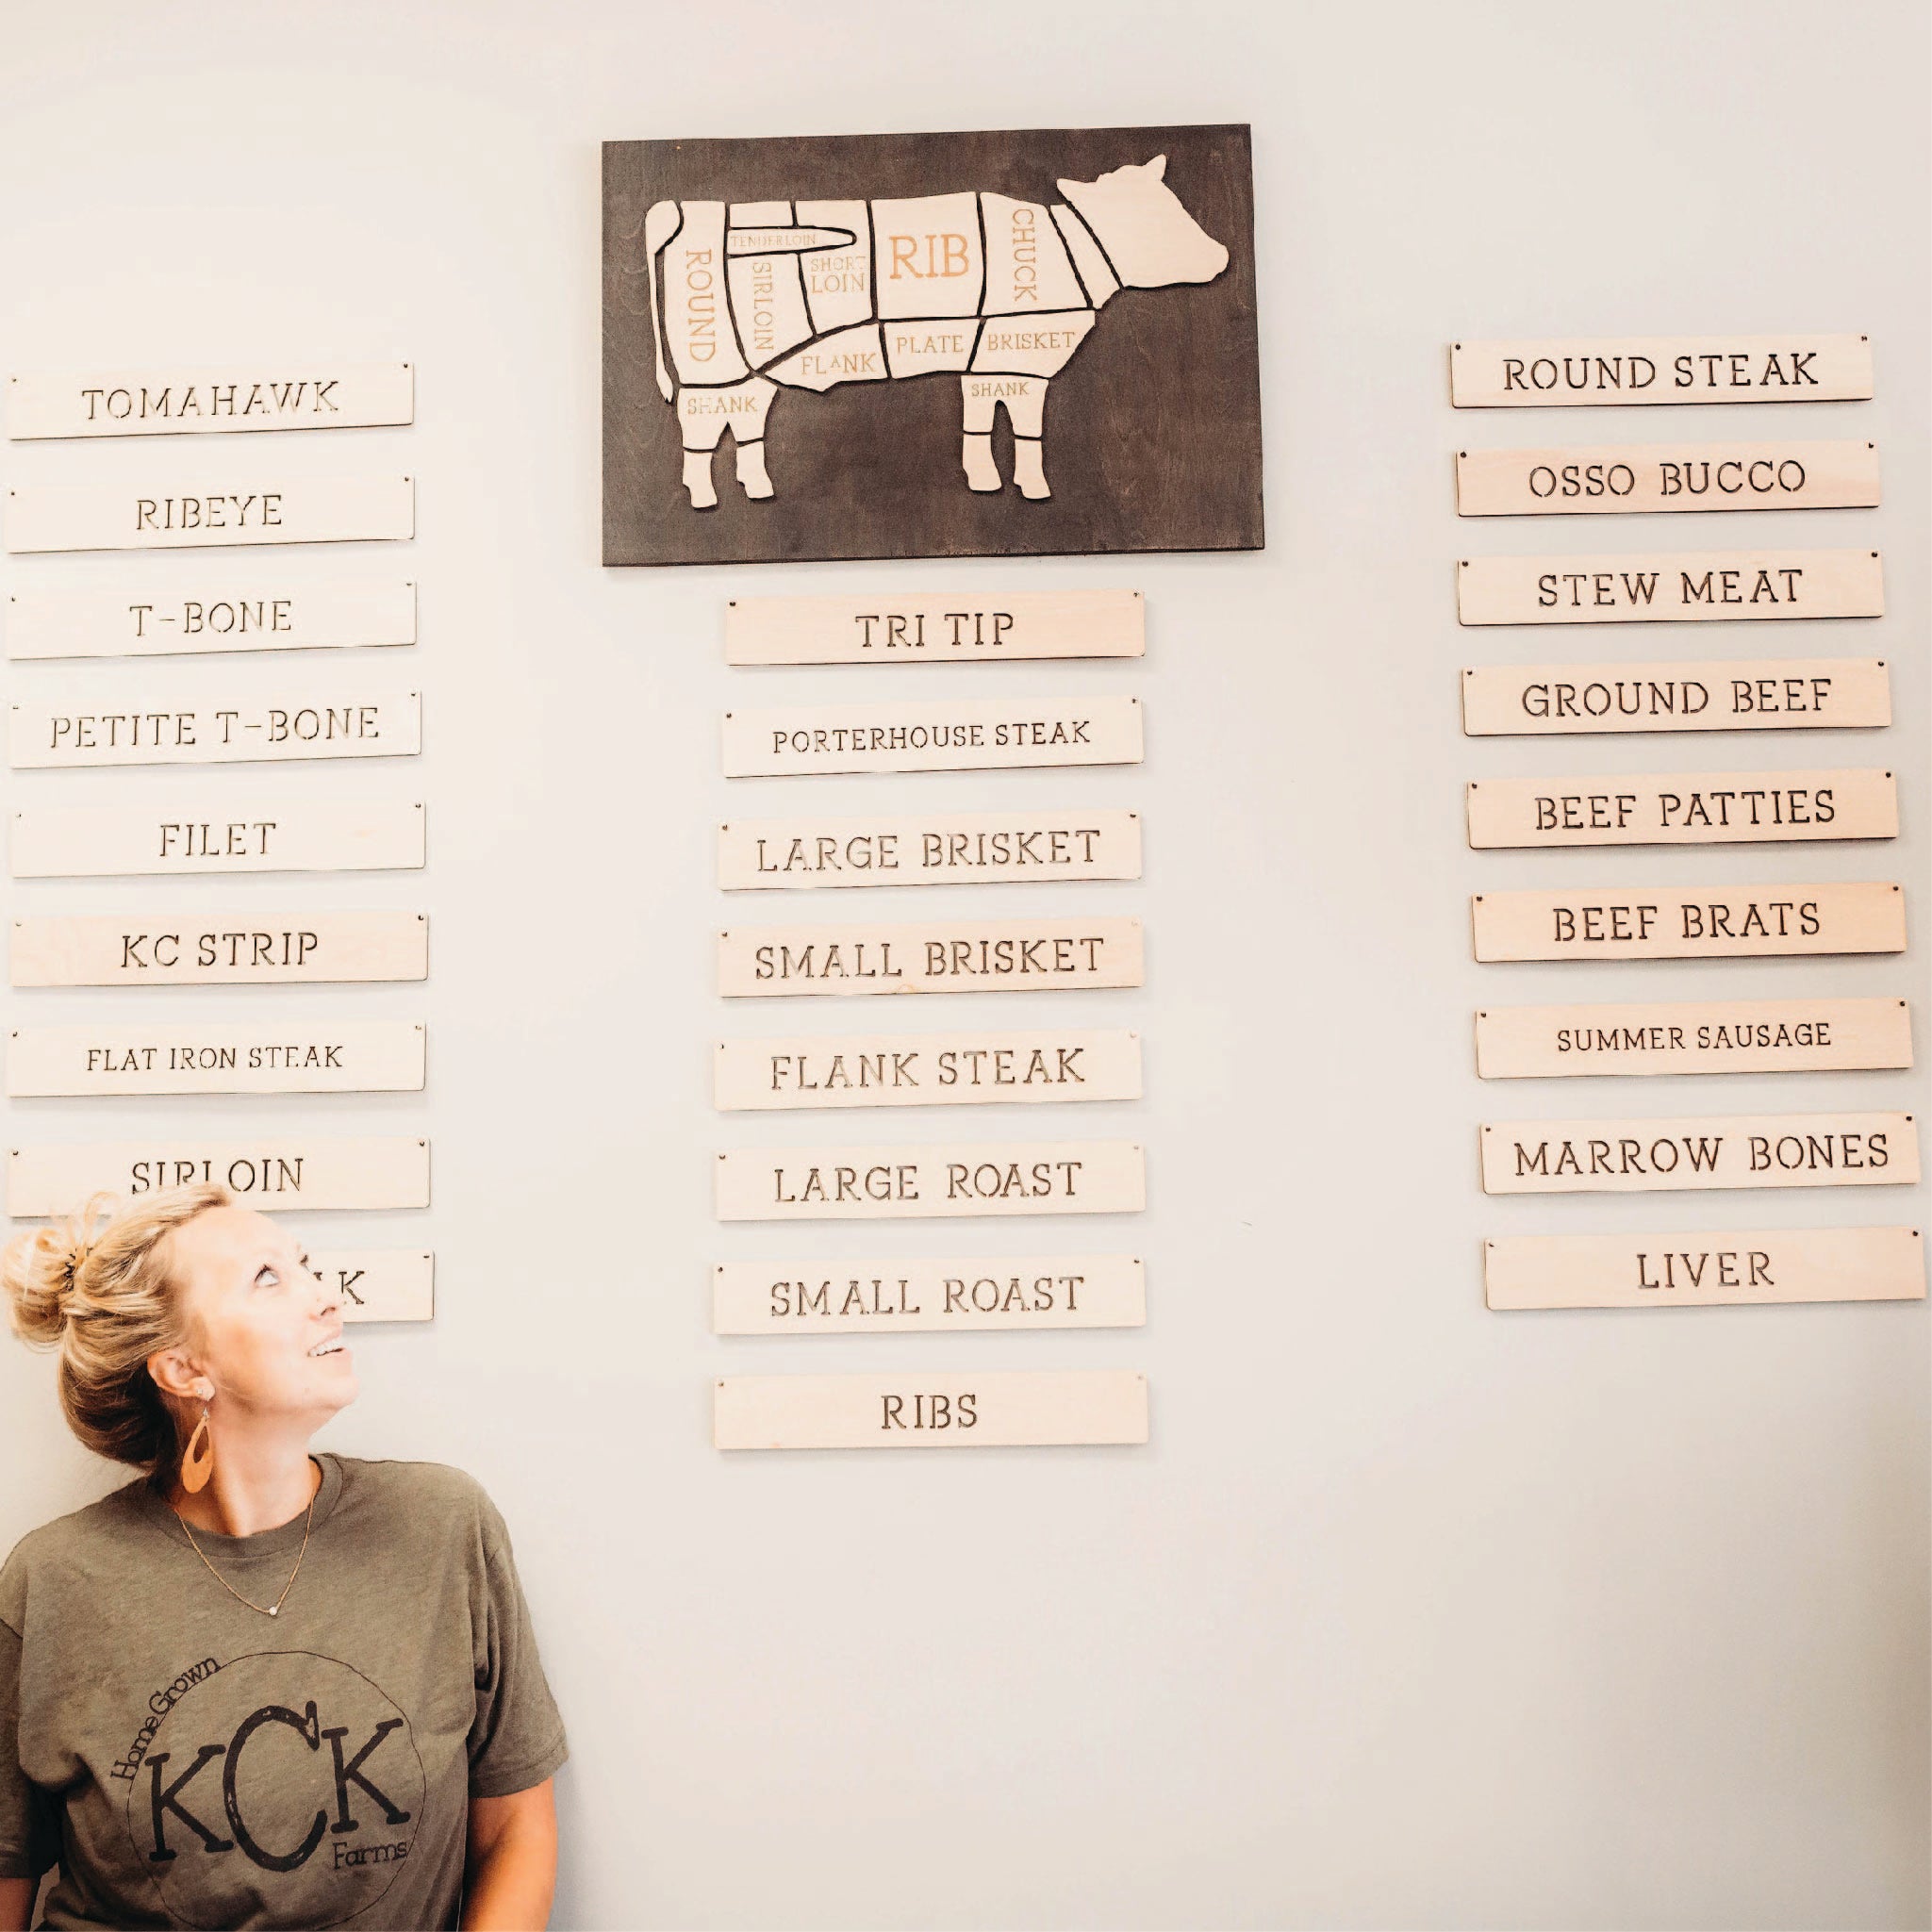 TENDERLOIN
ROUND
SIRLOIN
SHORT
LOIN
RIB
CHUCK
FLANK
PLATE
BRISKET
SHANK
SHANK
TOMAHAWK
RIBEYE
T-BONE
PETITE T-BONE
FILET
KC STRIP
FLAT IRON STEAK
SIRLOIN
TRI TIP
PORTERHOUSE STEAK
LARGE BRISKET
SMALL BRISKET
FLANK STEAK
LARGE ROAST
SMALL ROAST
RIBS
ROUND STEAK
OSSO BUCCO
STEW MEAT
GROUND BEEF
BEEF PATTIES
BEEF BRATS
SUMMER SAUSAGE
MARROW BONES
LIVER
Home Grown
KCK
Farms